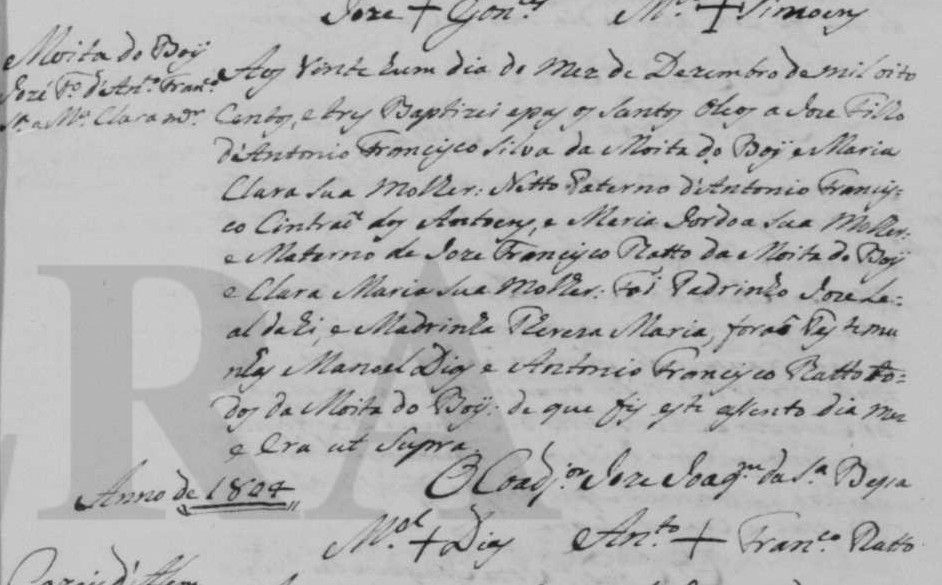 Joze + Gon.ces M.el + Simoens
Moita do Boy
Jozé F.o d'An.to Fran.co
S.a e M.a Clara m.er
Aos Vinte hum dia do Mez de Dezembro de mil oito
Centos, e tres Baptizei e pus os Santos Oleos a Joze Filho
d'Antonio Francysco Silva da Moita do Boy e Maria
Clara sua Molher: Netto Paterno d'Antonio Francys=
co Cintrao dos Antoens, e Maria Jordoa sua Molher:
e Materno de Joze Francysco Ratto da Moita do Boy
e Clara Maria sua Molher: Foi Padrinho Joze Le=
al dahi, e Madrinha Thereza Maria, forao Testemu
nhas Manoel Dias e Antonio Francysco Ratto to=
dos da Moita do Boy: de que fis este assento dia mez
e Era ut Supra
O Coadj.or Joze Joaq.m da S.a Bessa
Anno de 1804
M.el + Dias An.to + Fran.co Ratto